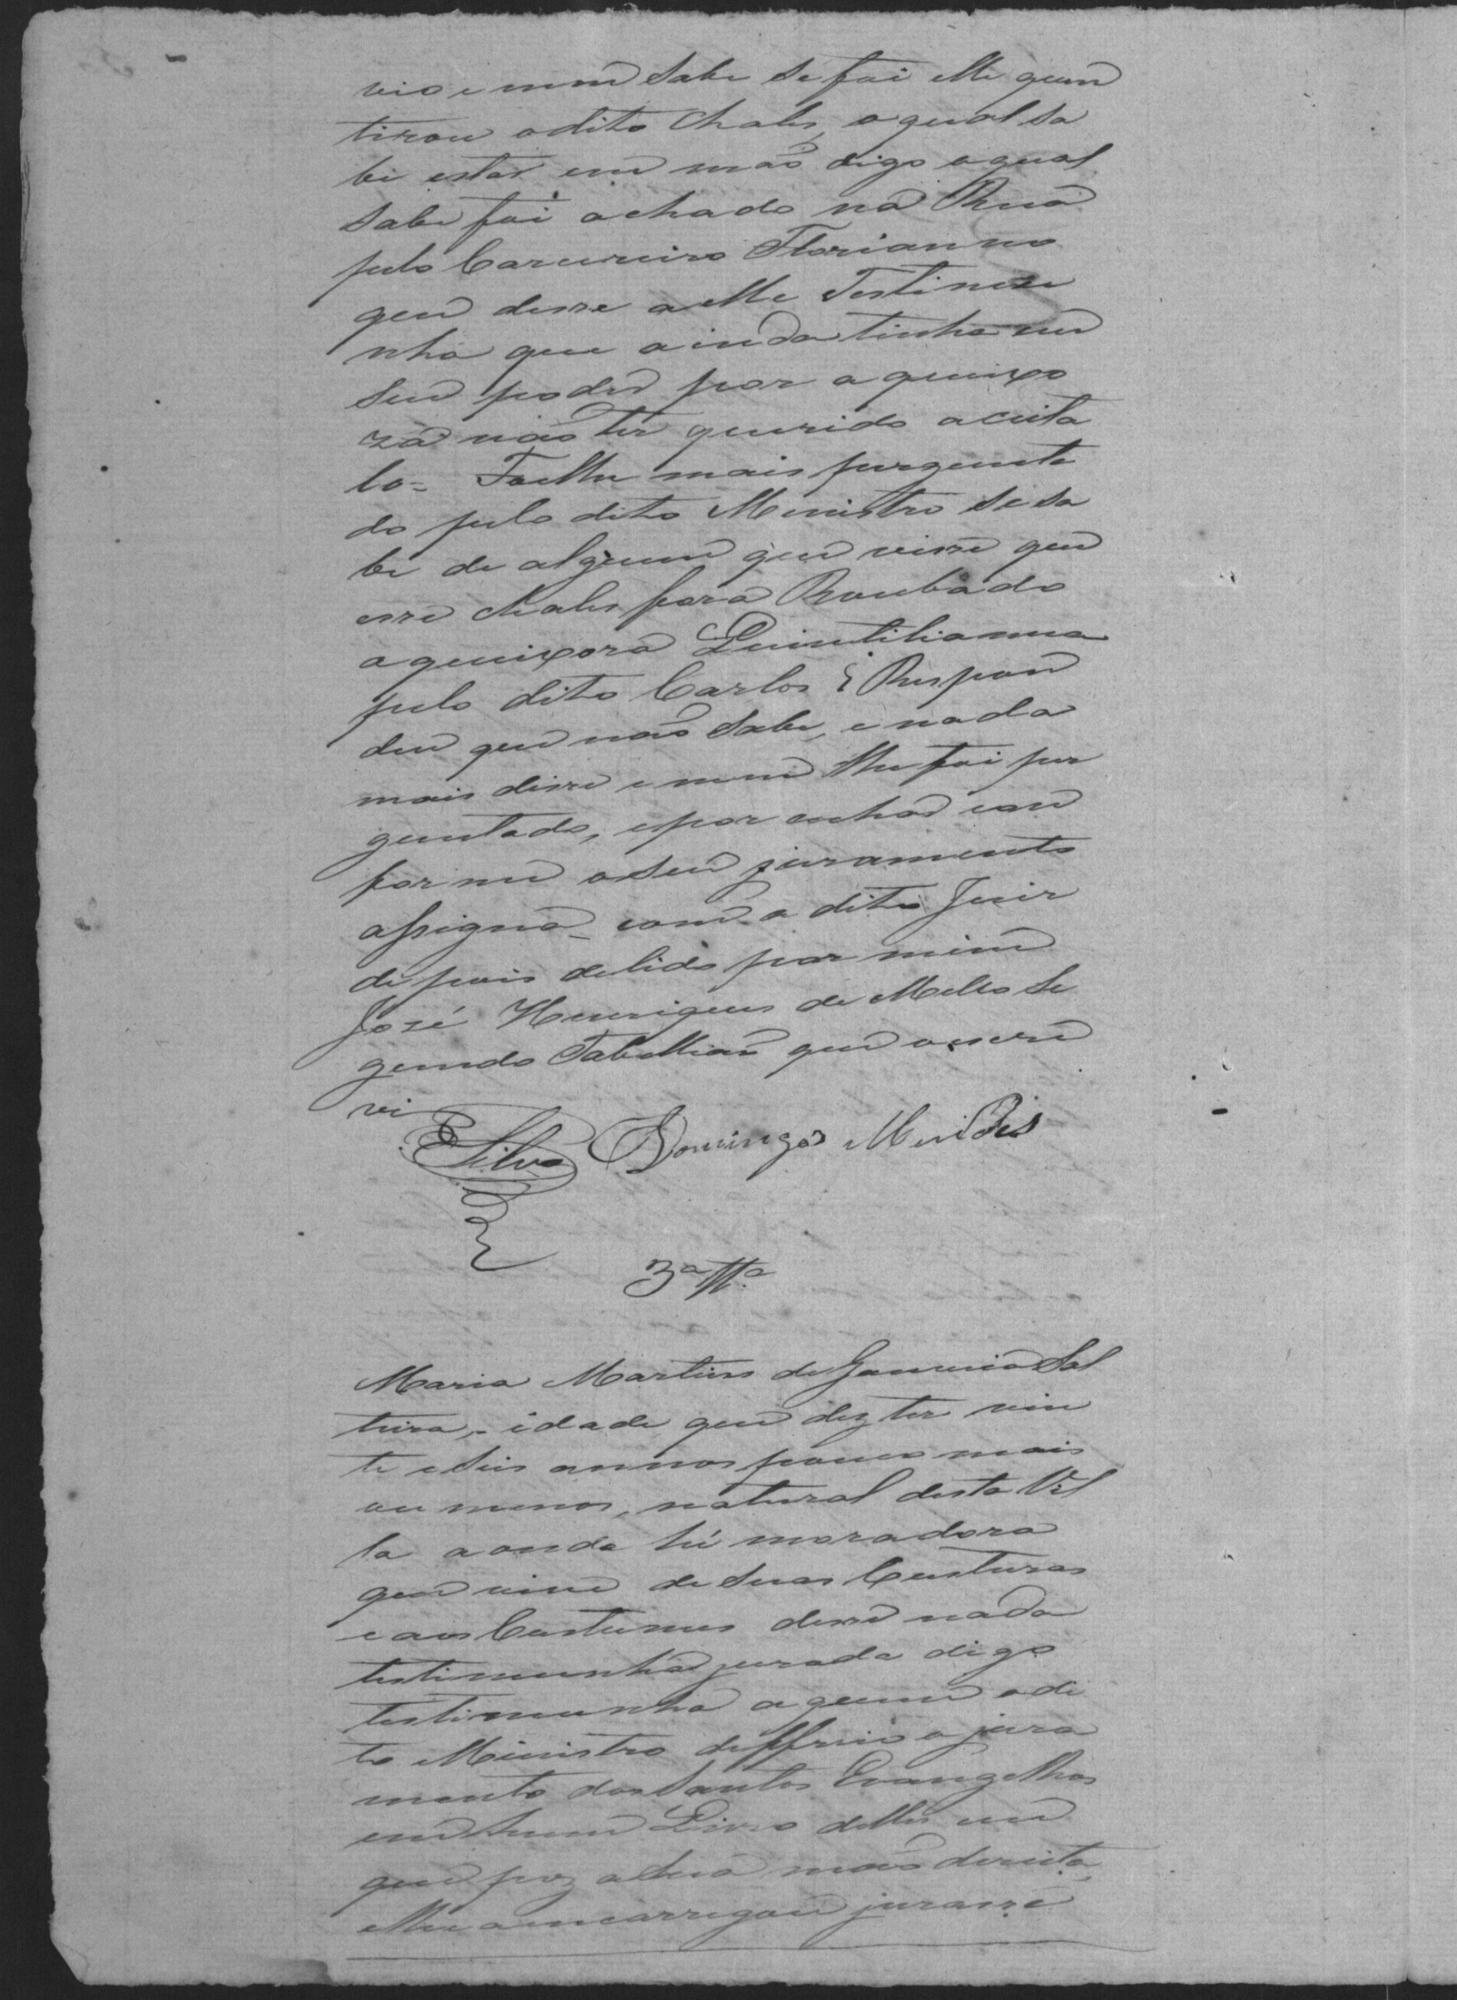 vio e nem sabe se foi elle quem
tirou o dito chales, o qual sa
be estar em mão digo o qual
sabe foi achado na Rua
pelo Carcereiro Florianno
que disse a elle Testimu
nha que ainda tinha em
seu poder por a queixo
za não ter querido aceita
lo = Foelhe mais perguenta
do pelo dito Menistro se sa
be de alguem que visse que
esse chales fora Roubado
a queixora Quintilianna
pelo dito Carlos? Respon
deu que não sabe, e nada
mais disse e nem lhe foi per
guntado, e por achar con
forme o seu juramento
assigna com o dito Juis
depois delido por mim
José Henriques de Mello Se
gundo Tabellião que o escre
vi
Silva Domingos Mendes
3ª Ttª
Maria Martins de Januario Sol
teira, idade que diz ter vin
te e seis annos pouco mais
ou menos, natural desta Vil
la aonde hé moradora
que vive de suas Custuras
e aos Custumes disse nada
testimunha jurada digo
testimunha a quem o di
to Ministro defferio o jura
mento dos Santos Evangelhos
em hum Livro delles em
que poz a sua mão direita,
elhe emcarregou jurasse